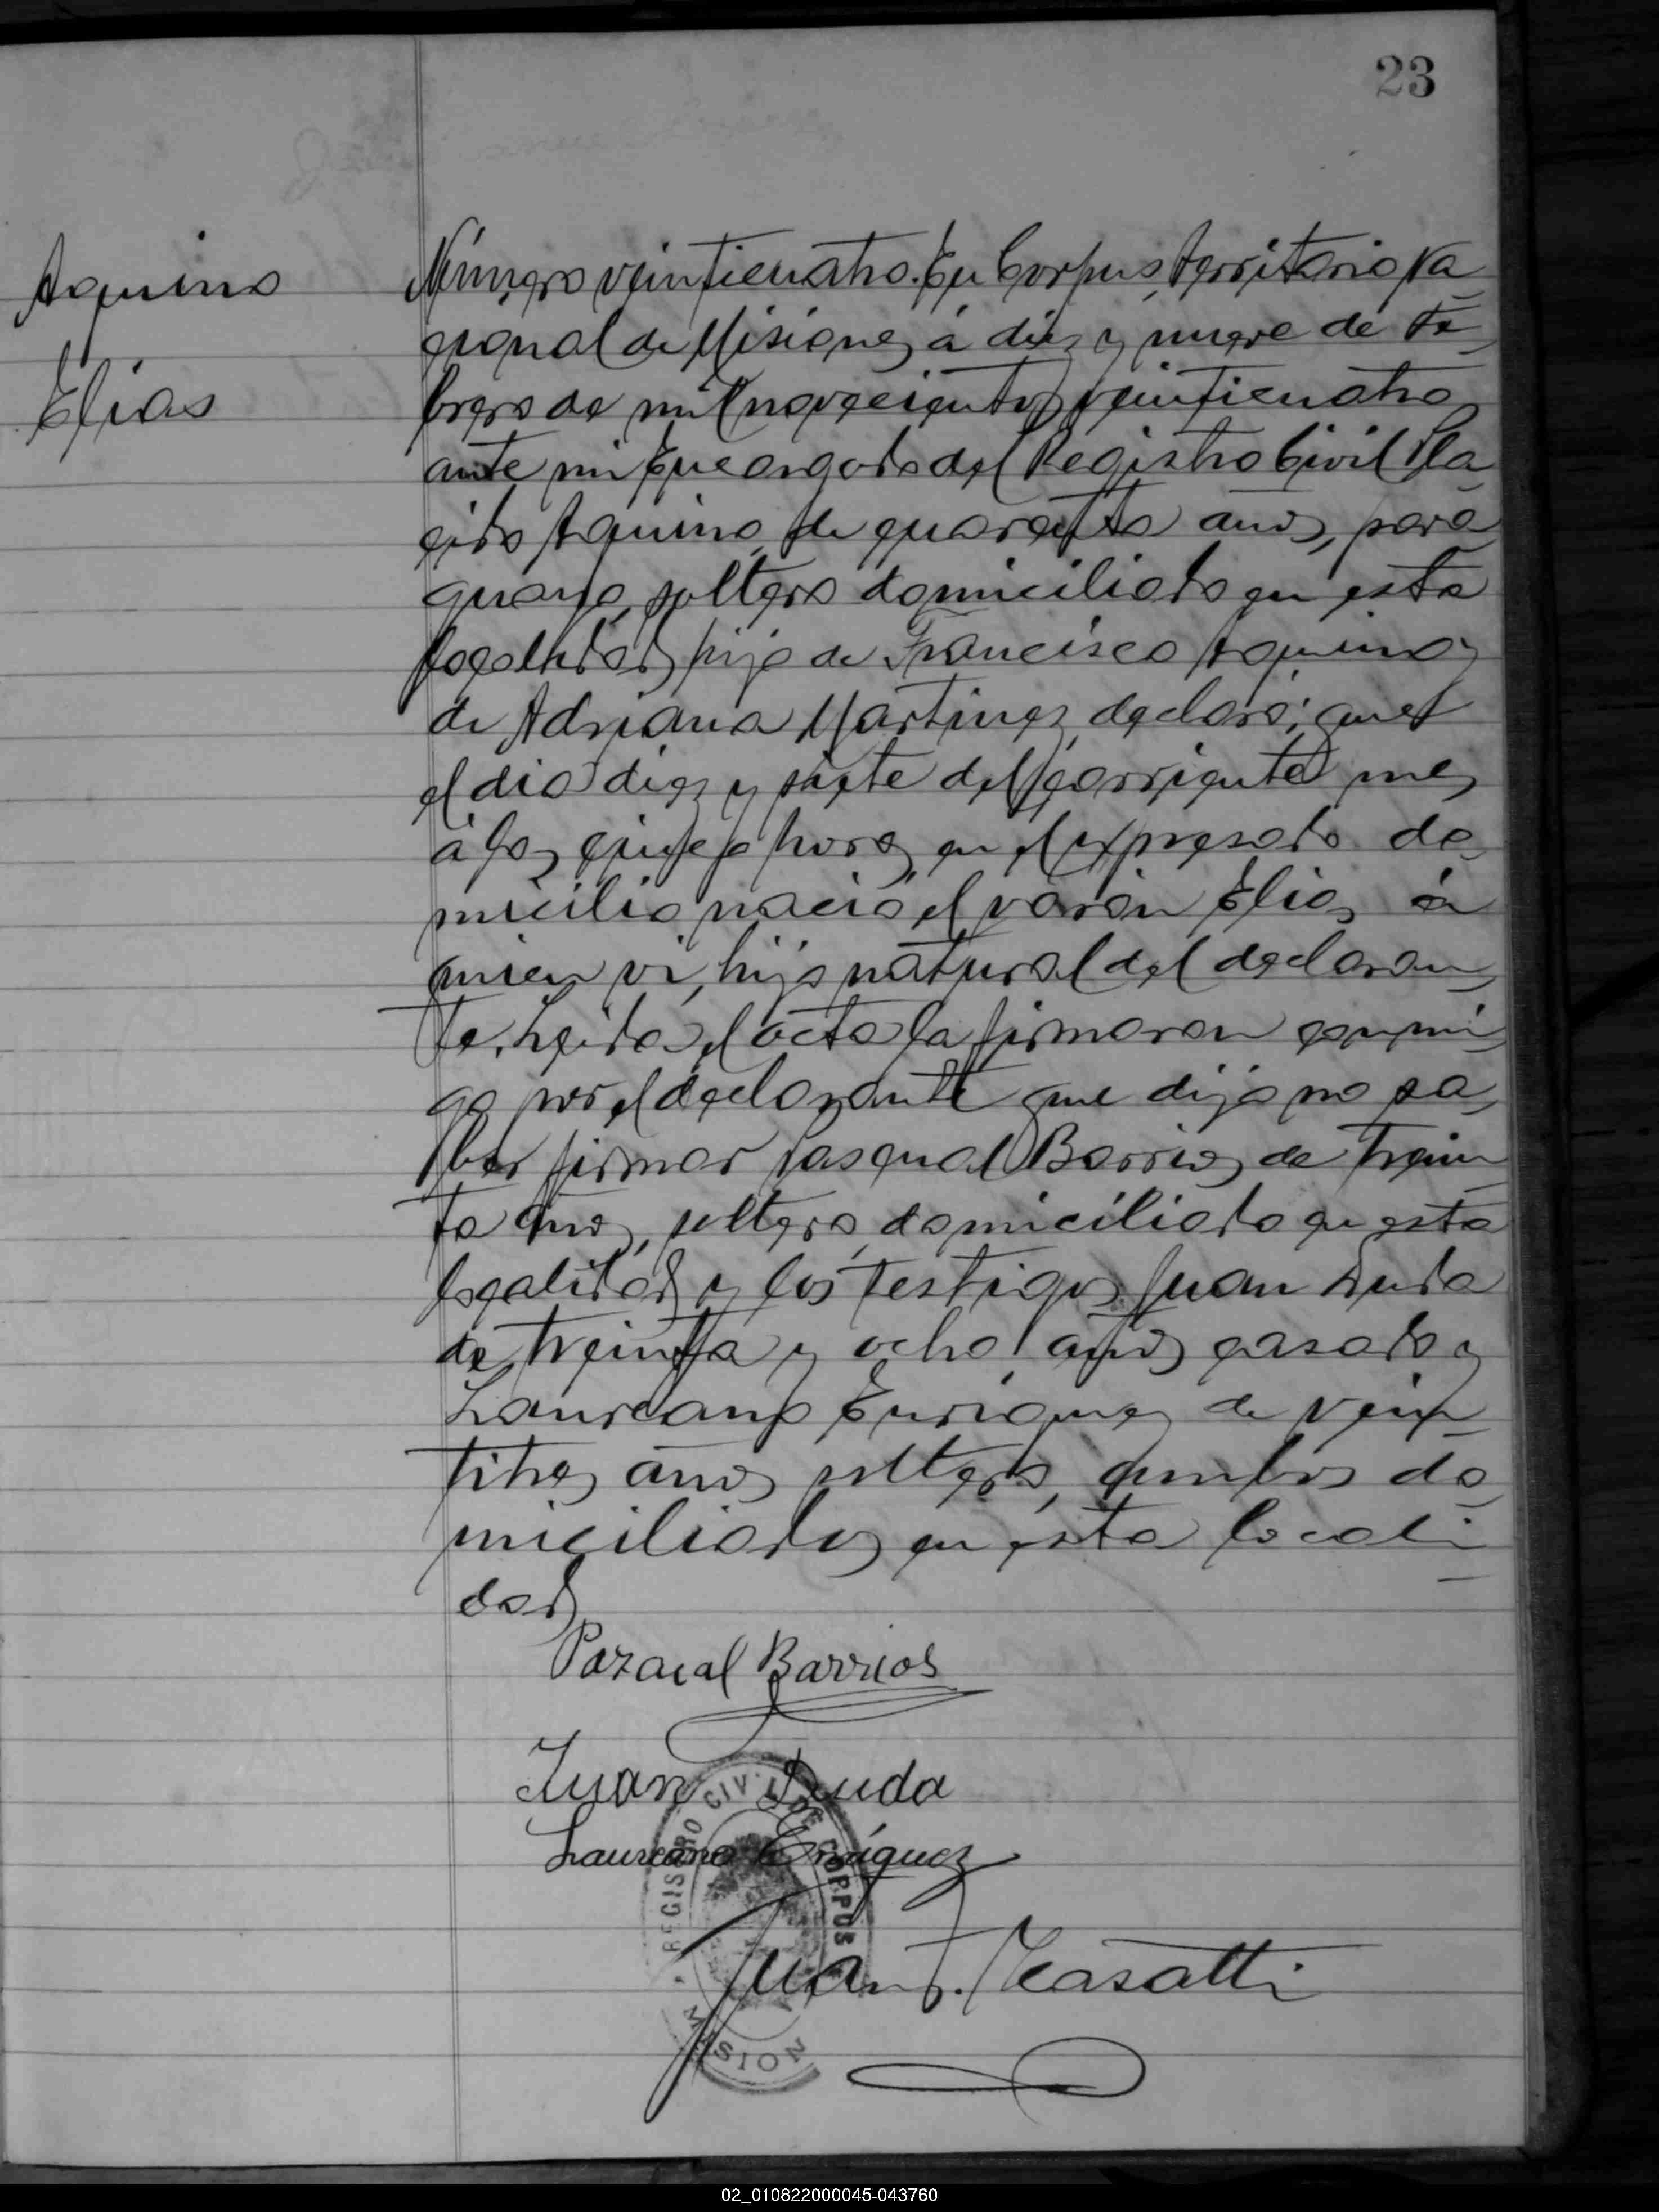 23
Aquino
Elias
Número veinticuatro. En Corpus, Territorio Na
cional de Misiones á diez y nueve de Fe
brero de mil novecientos veinticuatro
ante mi Encargado del Registro Civil Pla
cido Aquino, de cuarenta años, para
guayo, soltero domiciliado en esta
localidad, hijo de Francisco Aquino y
de Adriana Martinez, declaró; que
el dia diez y siete del corriente mes
á las horas en el expresado do
micilio nació el varón Elias á
quien vi, hijo natural del declaran
te. Leida el acta la firmaron conmi
go por el declarante que dijo no sa
ber firmar Pascual Barrios de trein
ta años, soltero, domiciliado en esta
localidad y los testigos Juan Duda
de treinta y ocho años casado y
Laureano Enriquez de vein
titres años soltero, ambos do
miciliados en esta locali
dad
Pazcual Barrios
Juan Duda
Laureano Enríquez
Juan Casatti
REGISTRO CIVIL DE CORPUS
MISION
02_010822000045-043760